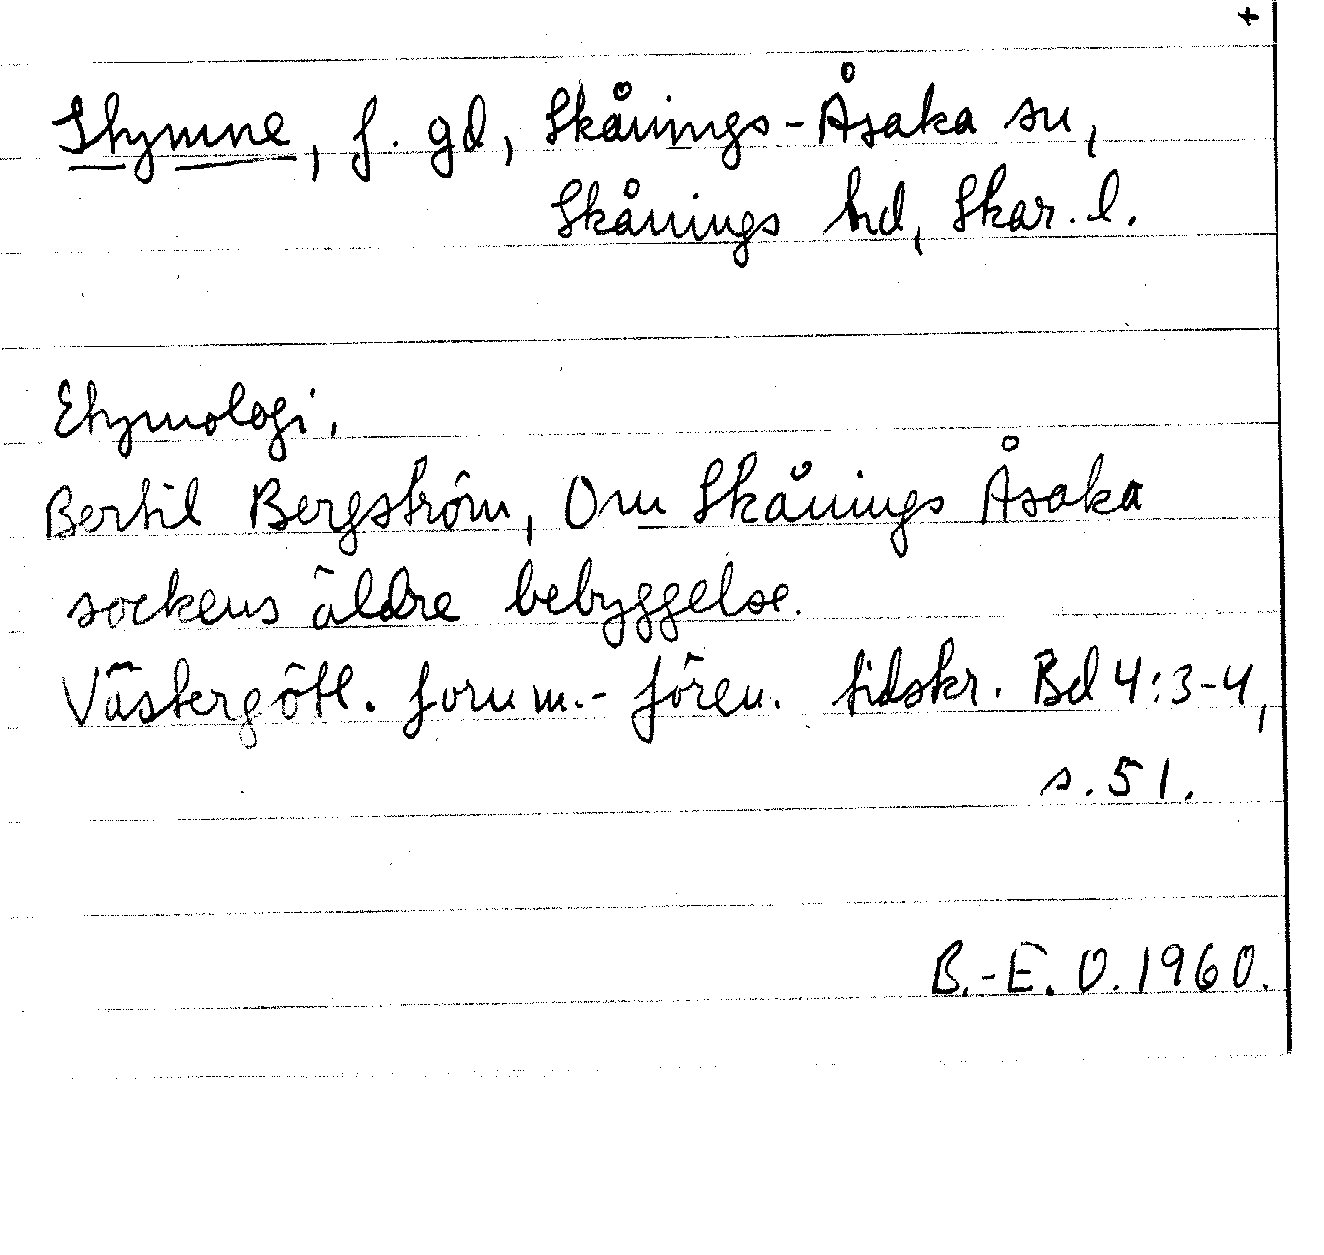 +
Stymne, f. gd, Skånings-Åsaka sn,
Skånings hd, Skar. l.
Etymologi.
Bertil Bergström, Om Skånings Åsaka
sockens äldre bebyggelse.
Västergötl. fornm.-fören. tidskr. Bd 4:3-4,
s. 51.
B.-E. O. 1960.